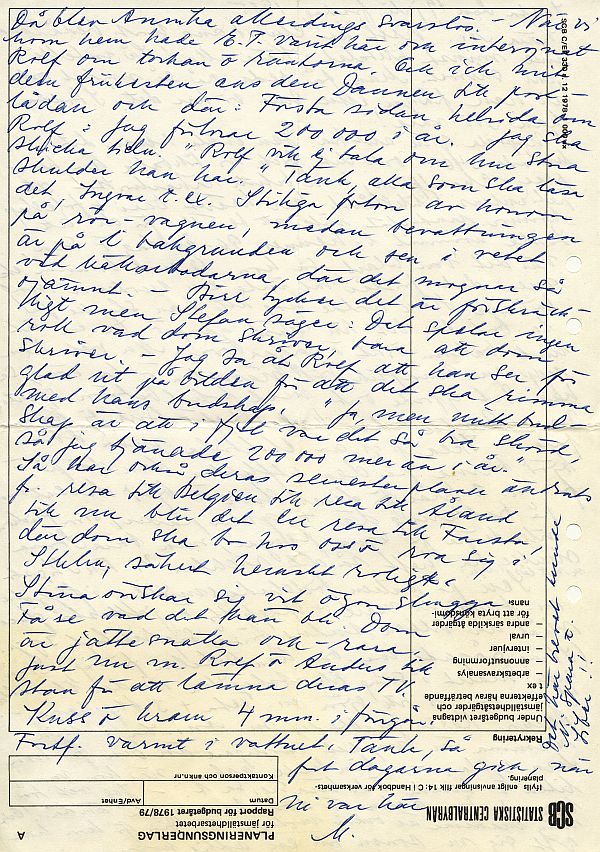 Då blev Annika alldeles svarslös. – När vi
kom hem hade E.T. varit här och intervjuat
Rolf om torkan o räntorna. Och ich
dem från den Dannen till post-
lådan och den: Första sidan helsida om
Rolf: "Jag förlorar 200 000 i år. Jag ska
skicka den." Rolf vill ej tala om hur stora
skulder han har. "Tänk, alla som ska läsa
det, Ingvar t.ex. Stiliga foton av honom
på rör-vagnen, medan bevattningen
är på i bakgrunden och sen i vetet
vid häckarbodarna, där det mognar så
ojämnt. – Biu tycker det är förskräck-
ligt men Stefan säger: Det spelar ingen
roll vad dom skriver, bara att dom
skriver. – Jag sa åt Rolf att han ser för
glad ut på bilden för att det ska rimma
med hans budskap. "Ja, men mitt bud-
skap är att i fjol var det så bra skörd,
så jag tjänade 200 000 mer än i år."
Så har också deras semesterplaner ändrats
fr. resa till Belgien till resa till Åland
till nu blir det en resa till Farsta!
där dom ska bo hos oss o roa sig i
Sthlm, säkert hemskt roligt.
Stina önskar sig vit ögonskugga
Få se vad det kan bli. Dom
är jättesnälla och rara.
Just nu m. Rolf o Anders till
stan för att lämna deras TV.
Kuss o kram 4 mm. i förrgår.
Fortf. varmt i vattnet. Tänk, så
fort dagarna gick, när
ni var här
M.
Det här brevet kunde
Ni spara t.
Liber!!
SCB C/E 330 a 12 1978 1 000 ex
A
PLANERINGSUNDERLAG
för jämställdhetsarbetet
Rapport för budgetåret 1978/79
SCB STATISTISKA CENTRALBYRÅN
Ifylls enligt anvisningar flik 14:C i Handbok för verksamhets-
planering.
Datum
Avd/Enhet
Kontaktperson och ankn.nr
Rekrytering
Under budgetåret vidtagna
jämställdhetsåtgärder och
effekterna härav beträffande
t ex
– arbetskravsanalys
– annonsutformning
– intervjuer
– urval
– andra särskilda åtgärder
för att bryta könsdomi-
nans